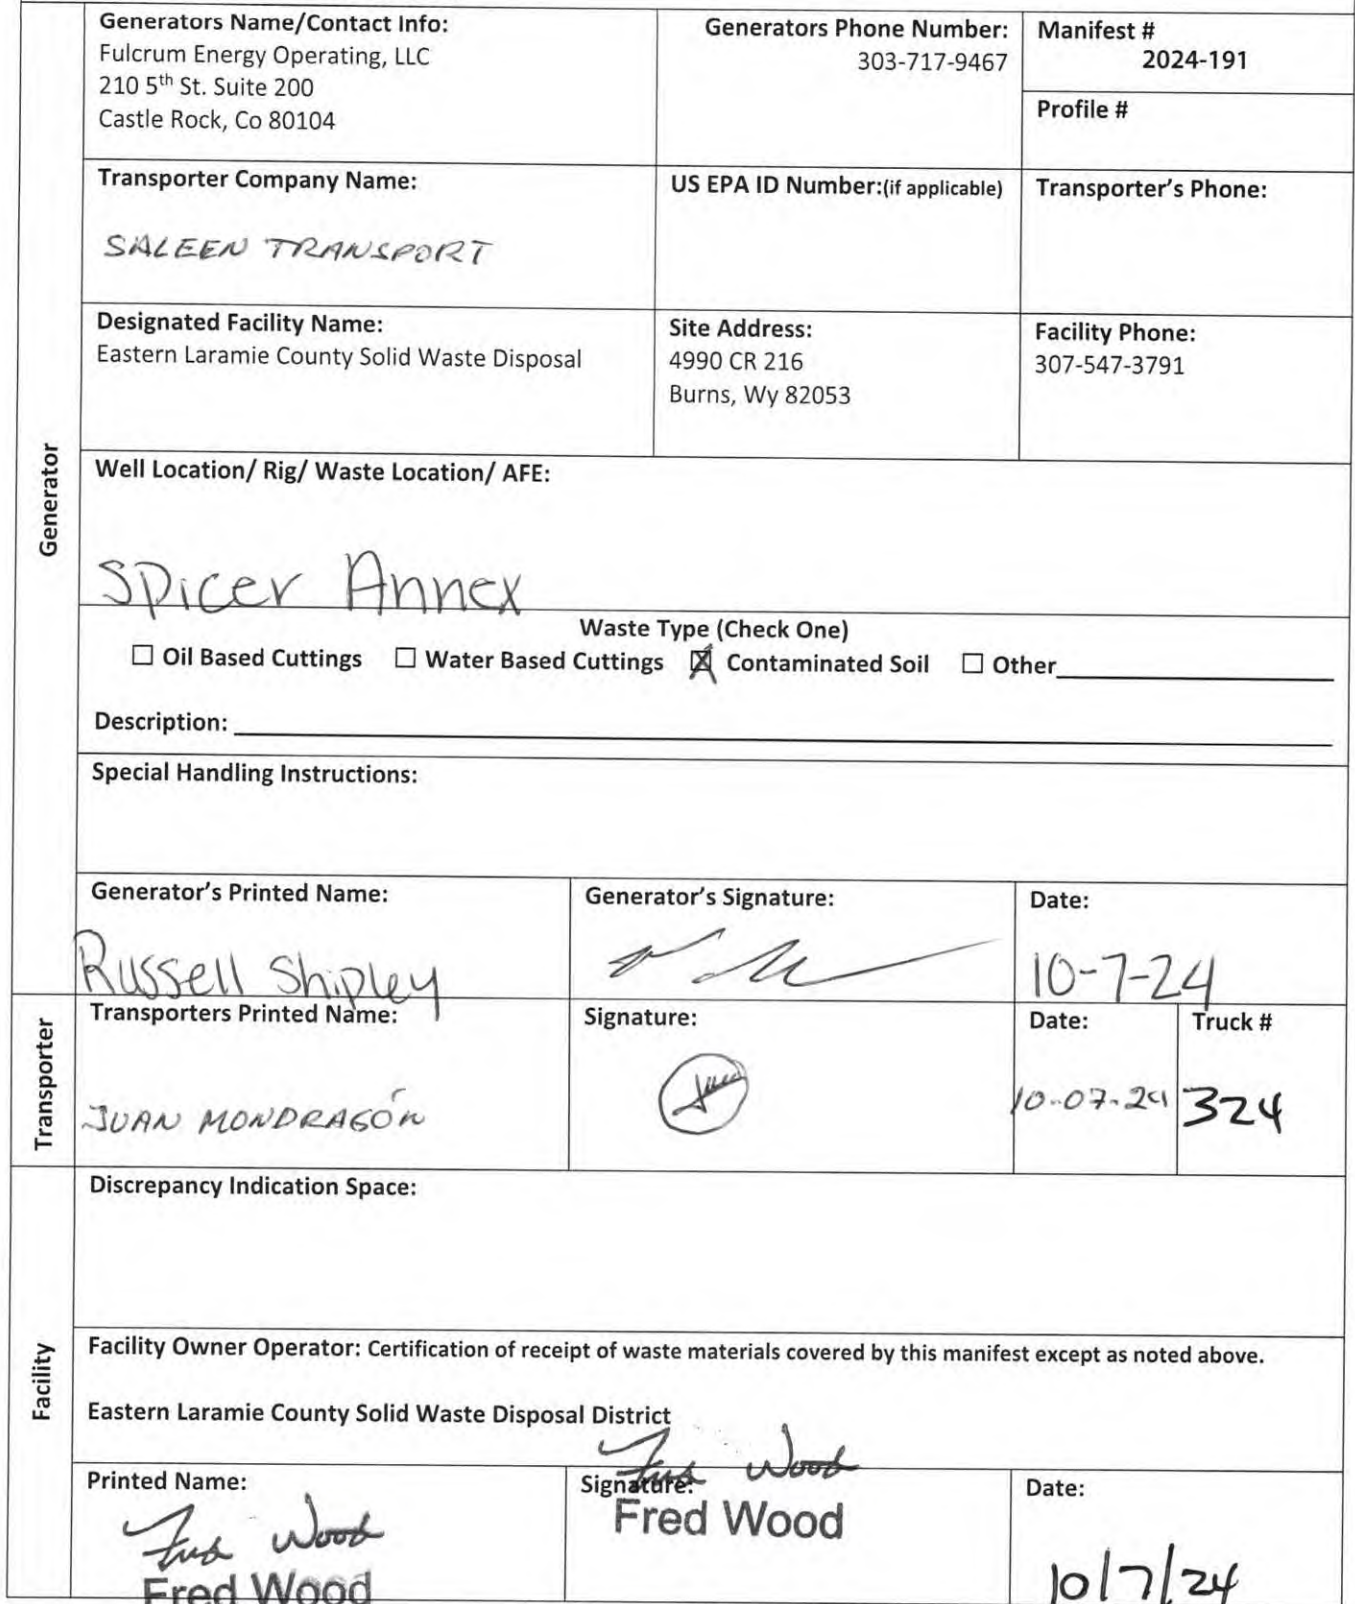 Generators Name/Contact Info:
Fulcrum Energy Operating, LLC
210 5th St. Suite 200
Castle Rock, Co 80104
Generators Phone Number:
303-717-9467
Manifest #
2024-191
Profile #
Transporter Company Name:
SALEEN TRANSPORT
US EPA ID Number:(if applicable)
Transporter's Phone:
Designated Facility Name:
Eastern Laramie County Solid Waste Disposal
Site Address:
4990 CR 216
Burns, Wy 82053
Facility Phone:
307-547-3791
Generator
Well Location/ Rig/ Waste Location/ AFE:
Spicer Annex
Waste Type (Check One)
☐ Oil Based Cuttings ☐ Water Based Cuttings ☒ Contaminated Soil ☐ Other
Description:
Special Handling Instructions:
Generator's Printed Name:
Russell Shipley
Generator's Signature:
Date:
10-7-24
Transporter
Transporters Printed Name:
JUAN MONDRAGÓN
Signature:
Date:
10-07-24
Truck #
324
Facility
Discrepancy Indication Space:
Facility Owner Operator: Certification of receipt of waste materials covered by this manifest except as noted above.
Eastern Laramie County Solid Waste Disposal District
Printed Name:
Fred Wood
Fred Wood
Signature:
Fred Wood
Fred Wood
Date:
10/7/24